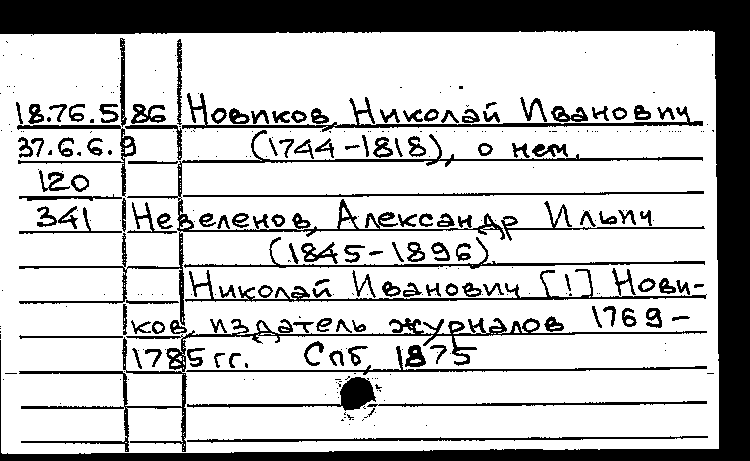 18.76.5.86 Новиков, Николай Иванович
37.6.6.9 (1744-1818), о нем.
120
341 Незеленов, Александр Ильич
(1845-1896).
Николай Иванович [!] Нови-
ков, издатель журналов 1769-
1785 гг. Спб, 1875